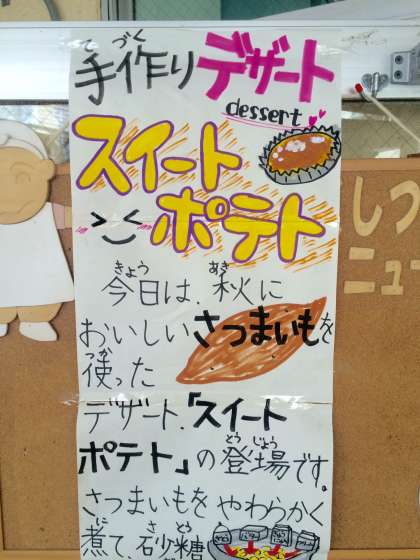 手作りデザート
dessert
スイート
ポテト
今日は、秋に
おいしいさつまいもを
使った
デザート、「スイート
ポテト」の登場です。
さつまいもを やわらかく
煮て、砂糖
しつ
ニュー